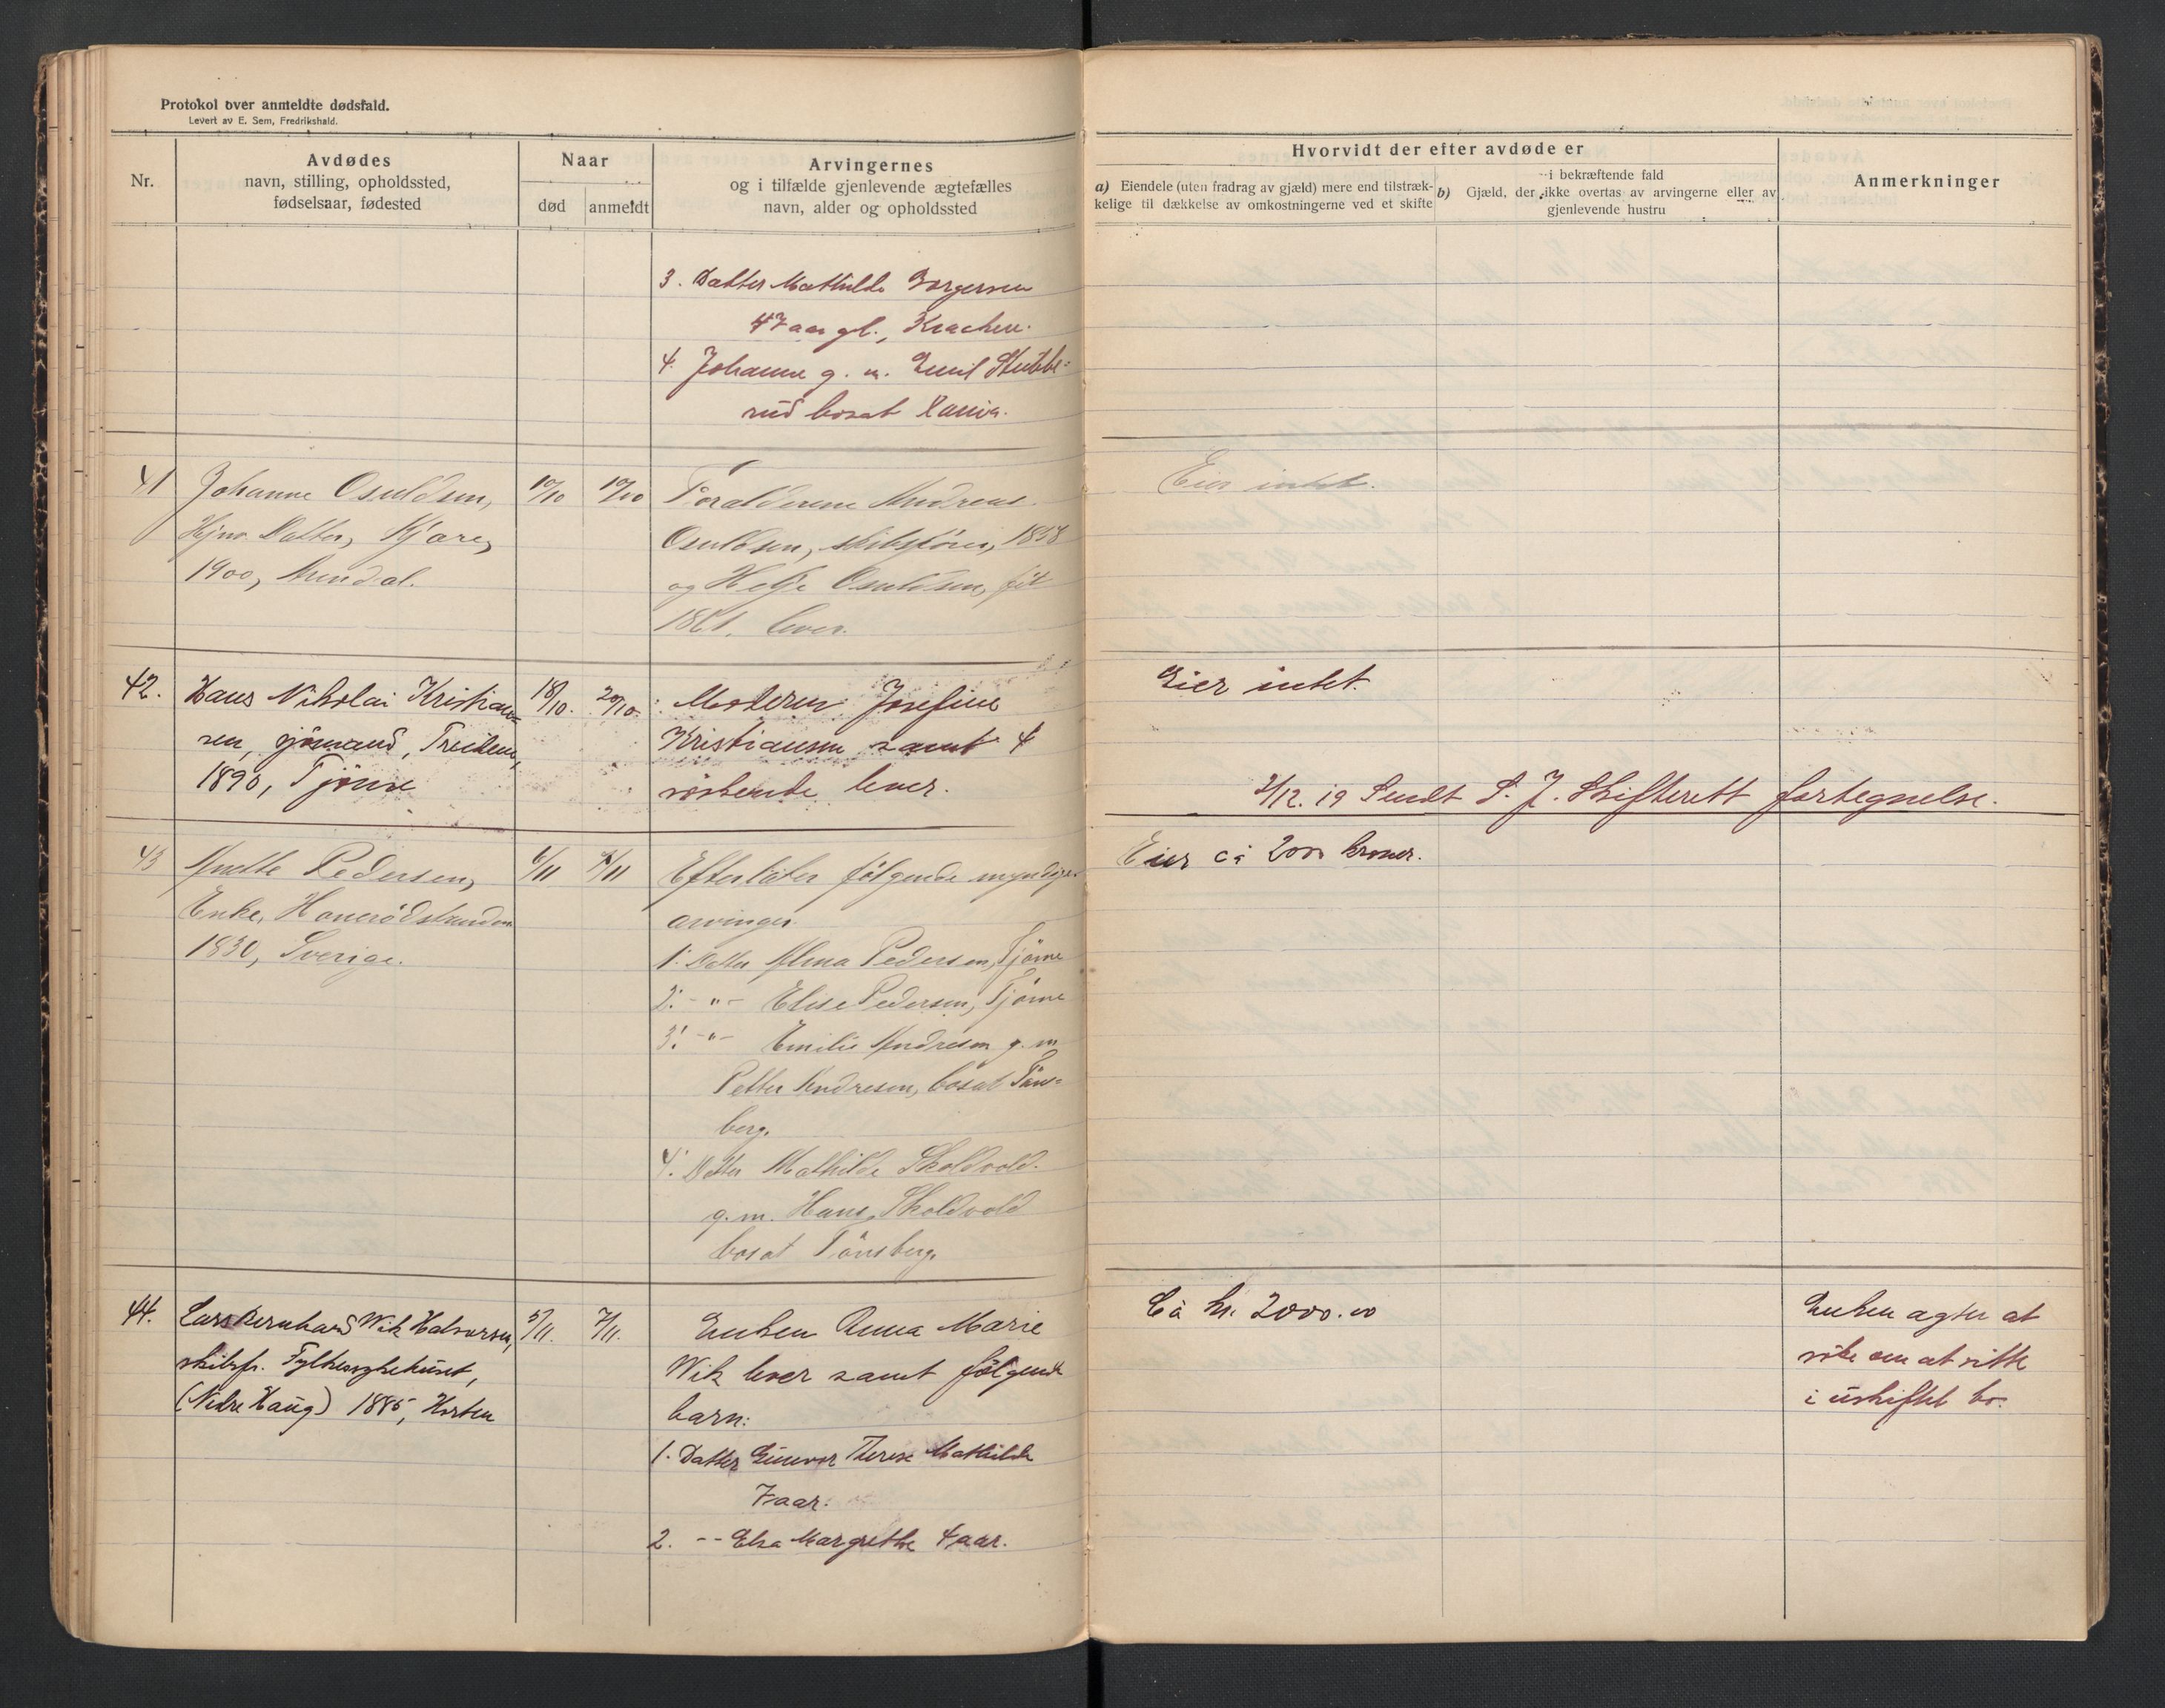 Protokol over anmeldte dødsfald.
Levert av E. Sem, Fredrikshald.
Nr.
Avdødes
navn, stilling, opholdssted,
fødselsaar, fødested
Naar
død
anmeldt
Arvingernes
og i tilfælde gjenlevende ægtefælles
navn, alder og opholdssted
Hvorvidt der efter avdøde er
a) Eiendele (uten fradrag av gjæld) mere end tilstræk-
kelige til dækkelse av omkostningerne ved et skifte
i bekræftende fald
b) Gjæld, der ikke overtas av arvingerne eller av
gjenlevende hustru
Anmerkninger
3. Datter Mathilde Borgersen
47 aar gl.,
4. Johanne g. m. Emil Stubbe-
rud bosat Kania.
41
Johanne Osuldsen,
Hjv. Datter, Kjære,
1900, Arendal.
10/10
19/10
Forælderene Andreas
Osuldsen, skibsfører, 1858
og Helje Osuldsen, föt
1861. lever.
Eier intet.
42.
Hans Nikolai Kristian-
sen, sjömand, Treidene,
1890, Tjöme
18/10.
20/10.
Moderen Josefine
Kristiansen samt 4
söskende lever.
Eier intet.
2/12. 19 Sendt S. J. Skifterett fortegnelse.
43
Anette Pedersen,
Enke, Honerödstranden
1830, Sverige.
6/11
7/11
Efterlater følgende myndige
arvinger
1. Datter Alma Pedersen, Tjöme
2. -"- Elise Pedersen, Tjöme
3. -"- Emilie Andresen g. m
Petter Andresen, bosat Töns-
berg.
4. Datter Mathilde Skoldvold.
g. m. Hans Skoldvold
bosat Tönsberg.
Eier ca 2000 kroner.
44.
Lars Bernhard Wik Halvorsen,
skibsf. Fylkessykehuset,
(Nedre Haug) 1885, Horten
5/11.
7/11.
Enken Anna Marie
Wik lever samt følgende
barn:
1. Datter Gunvor Therese Mathilde
7 aar.
2. -- Elsa Margrethe 4 aar.
Ca kr. 2000.00
Enken agter at
söke om at sitte
i uskiftet bo.